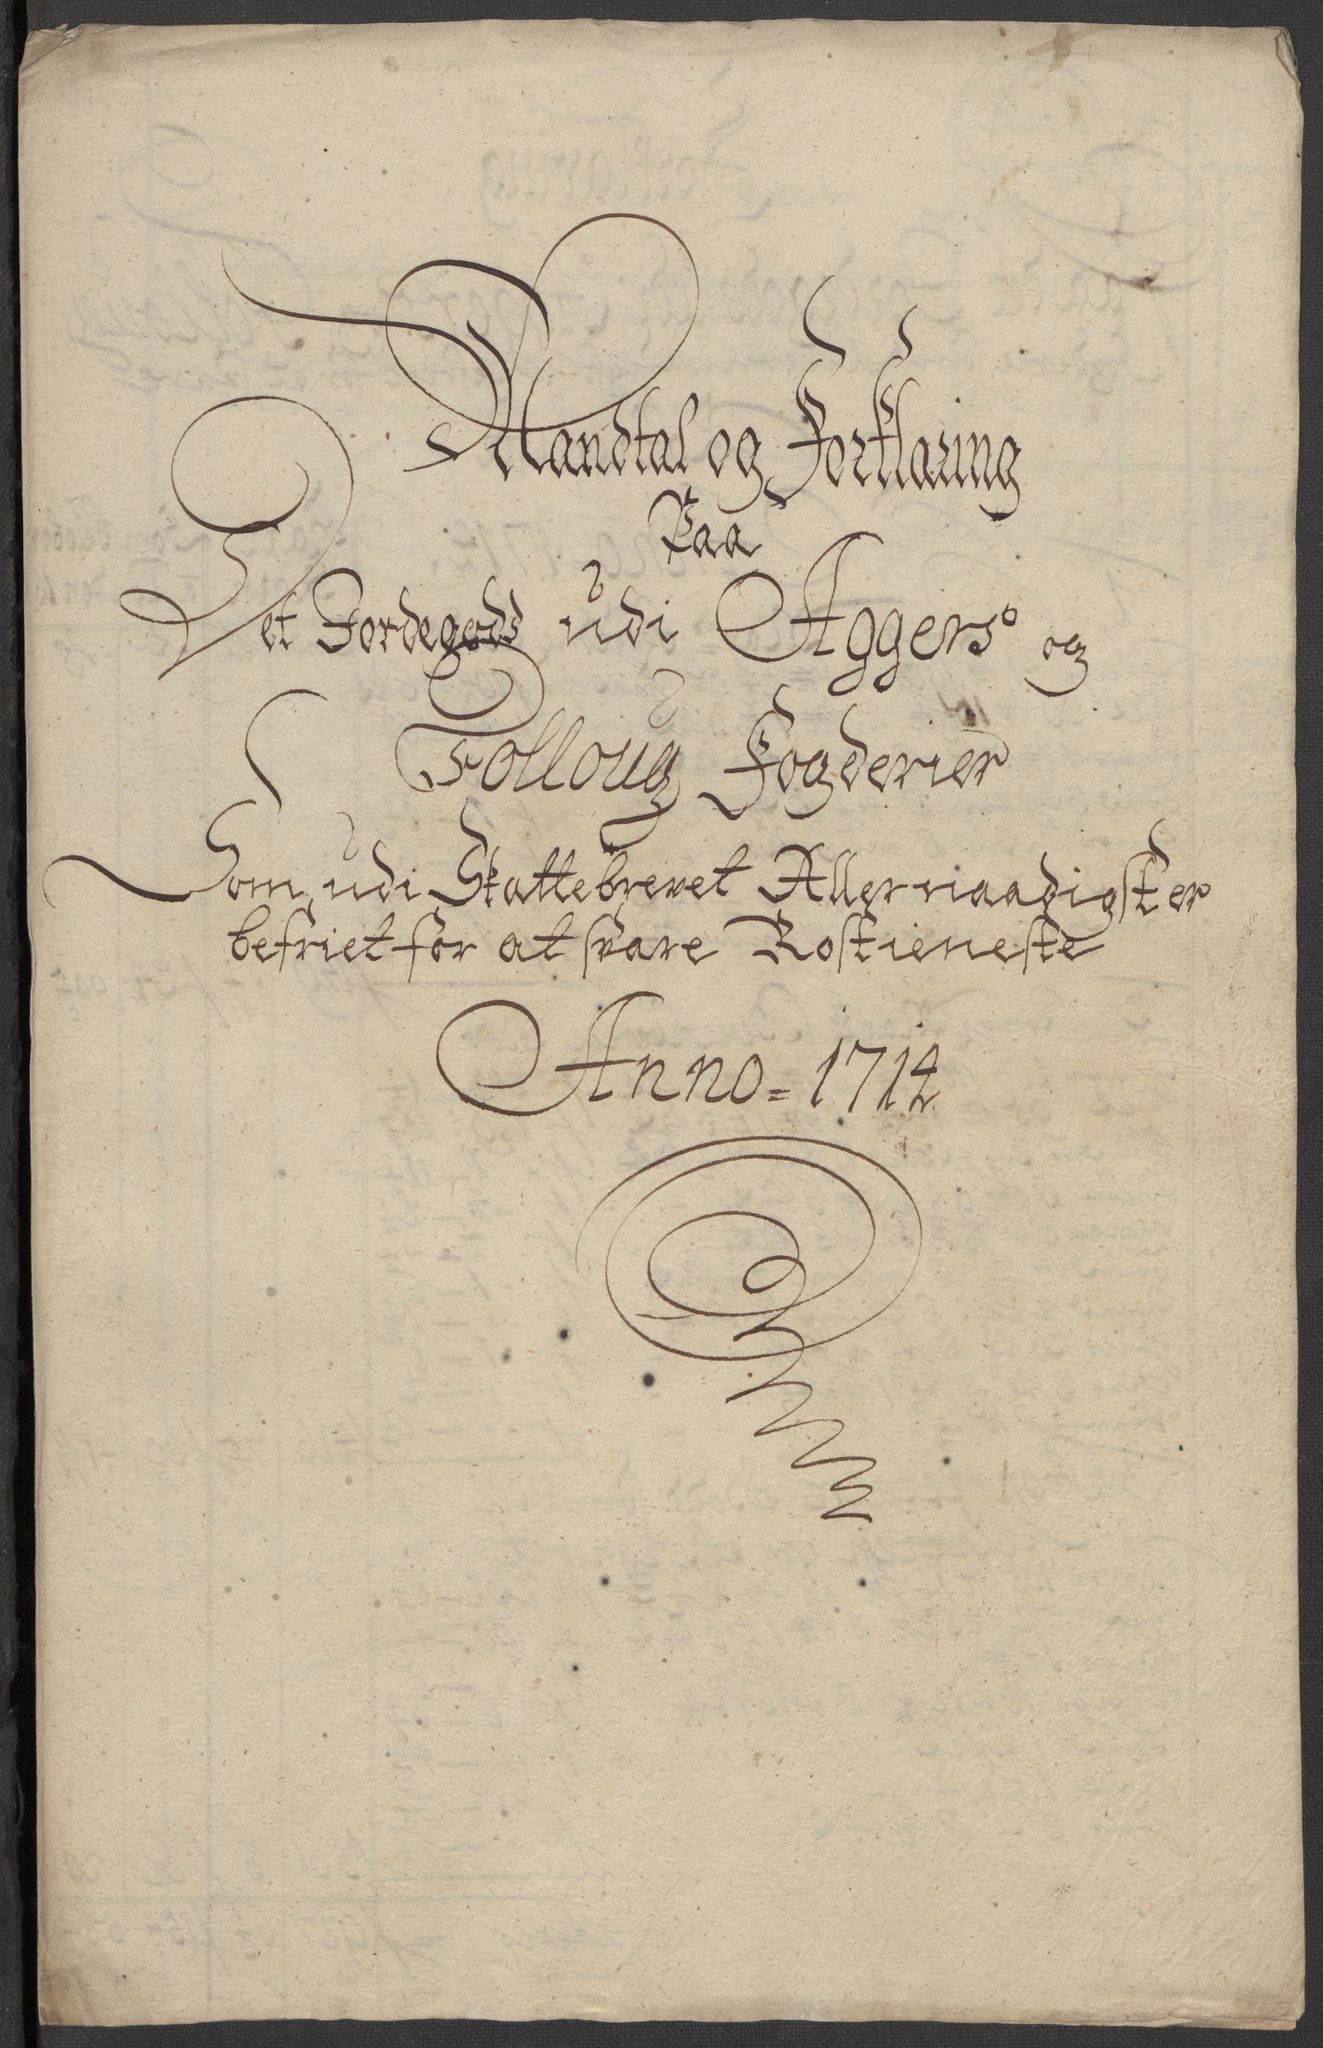 Mandtal og Forklaring
Paa
Det Jordegods udi Aggers og
Folloug Fogderier
Som udi Skattebrevet Allernaadigst er
befriet for at svare Rostieneste
Anno = 1714